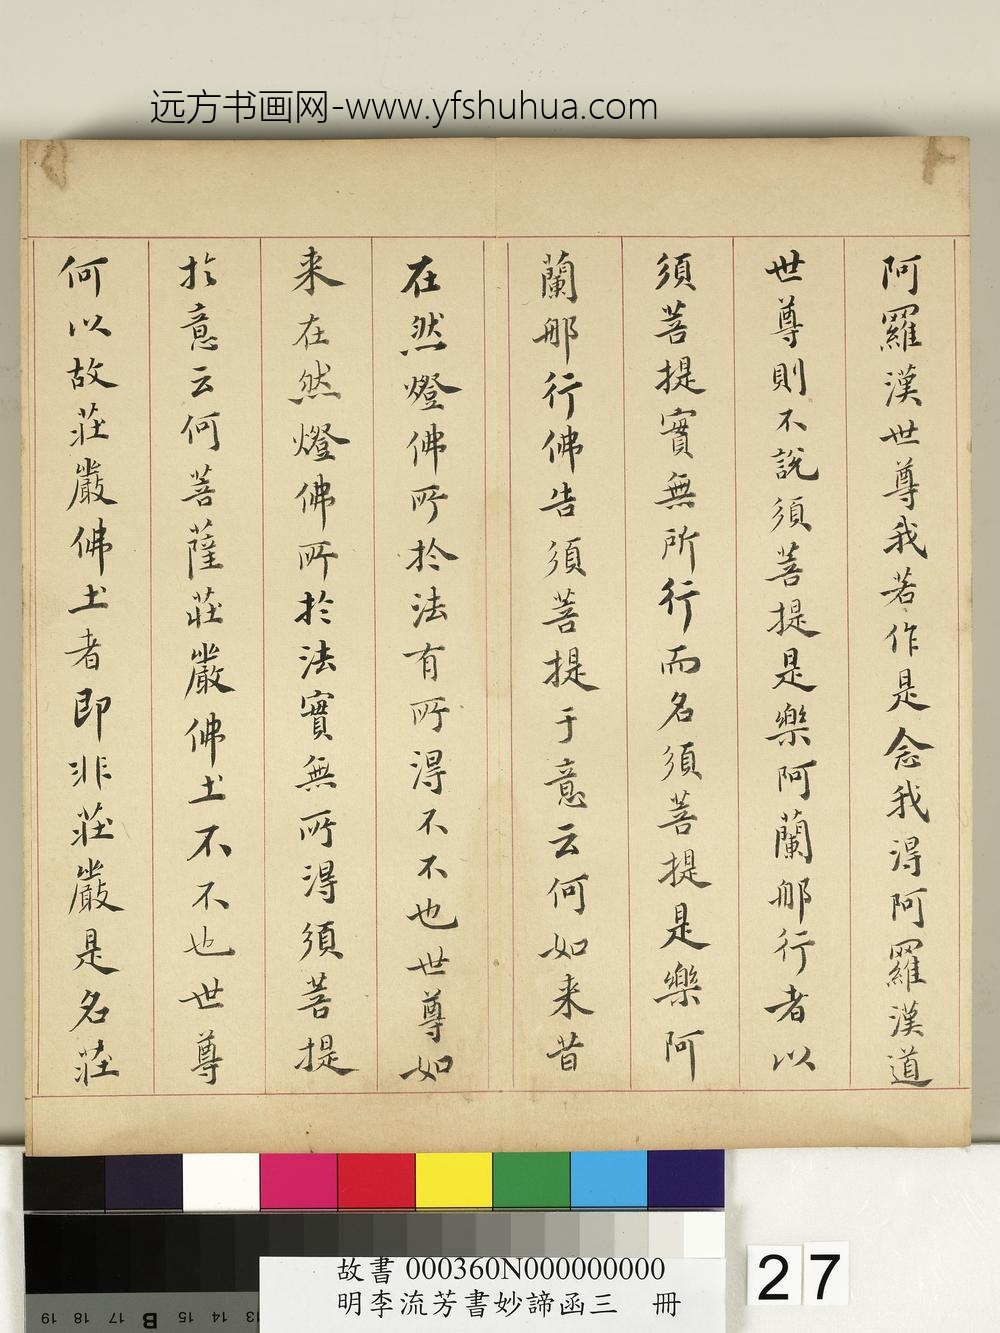 远方书画网-www.yfshuhua.com
阿羅漢世尊我若作是念我得阿羅漢道
世尊則不說須菩提是樂阿蘭那行者以
須菩提實無所行而名須菩提是樂阿
蘭那行佛告須菩提于意云何如来昔
在然燈佛所於法有所得不不也世尊如
来在然燈佛所於法實無所得須菩提
於意云何菩薩莊嚴佛土不不也世尊
何以故莊嚴佛土者即非莊嚴是名莊
故書 000360N000000000
明李流芳書妙諦函三 冊
27
19 18 17 B 15 14 13